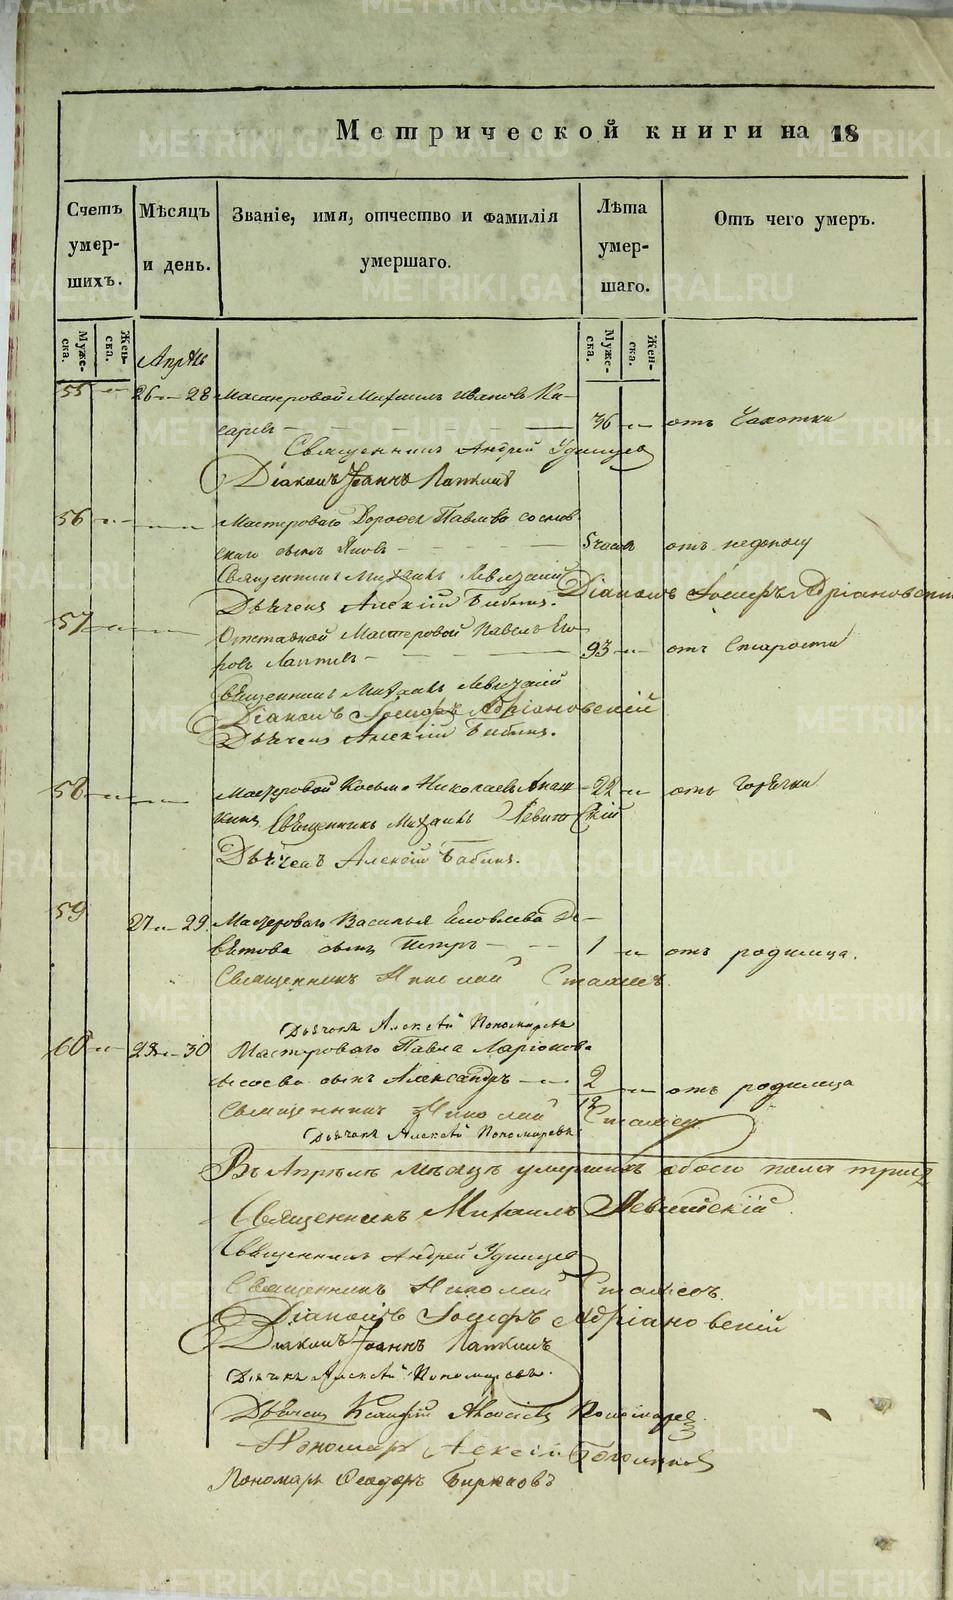 METRIKI.GASO-URAL.RU
Метрической книги на 18
Счетъ умер-шихъ.
Мѣсяцъ и день.
Званіе, имя, отчество и фамилія умершаго.
Лѣта умер-шаго.
Отъ чего умеръ.
Муже-ска.
Жен-ска.
Муже-ска.
Жен-ска.
Апрѣль
55 26 28 Мастеровой Михаилъ Ивановъ
36 отъ Чахотки
Священникъ Андрей Удинцев
Діаконъ Іоаннъ
56 Мастероваго Дороѳея Павлова
сынъ Яковъ 5 часов отъ недоносу
Священникъ Михаилъ Левитскій
Дьячекъ Алексій Бабинъ. Діаконъ Іосифъ Адріановскій
57 Отставной Мастеровой Павелъ Его-
ровъ Лаптевъ 93 отъ Старости
Священникъ Михаилъ Левитскій
Діаконъ Іосифъ Адріановскій
Дьячекъ Алексій Бабинъ.
58 Мастеровой Косьма Николаевъ 22 отъ Горячки
Священникъ Михаилъ Левитскій
Дьячекъ Алексій Бабинъ.
59 27 29 Мастероваго Василья Яковлева
сынъ Петръ 1 отъ родимца.
Священникъ Николай
Дьячекъ Алексѣй Пономаревъ
60 28 30 Мастероваго Павла Ларіонова
сынъ Александръ 2/12 отъ родимца
Священникъ Николай
Дьячекъ Алексѣй Пономаревъ
Въ Апрѣлѣ мѣсяцѣ умершихъ обоего пола
Священникъ Михаилъ Левитскій.
Священникъ Андрей Удинцев
Священникъ Николай
Діаконъ Іосифъ Адріановскій
Діаконъ Іоаннъ
Дьячекъ Алексѣй Пономаревъ.
Дьячекъ
Пономарь Алексій
Пономарь Ѳеодоръ Бирюковъ